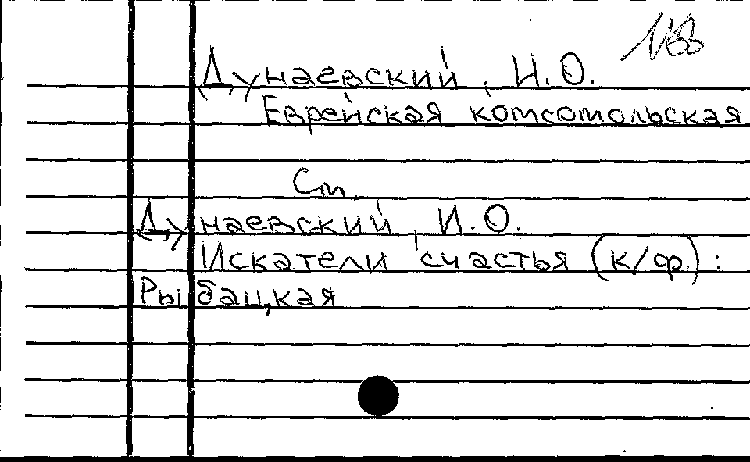 168
Дунаевский, И.О.
Еврейская комсомольская
См.
Дунаевский, И.О.
Искатели счастья (к/ф.):
Рыбацкая